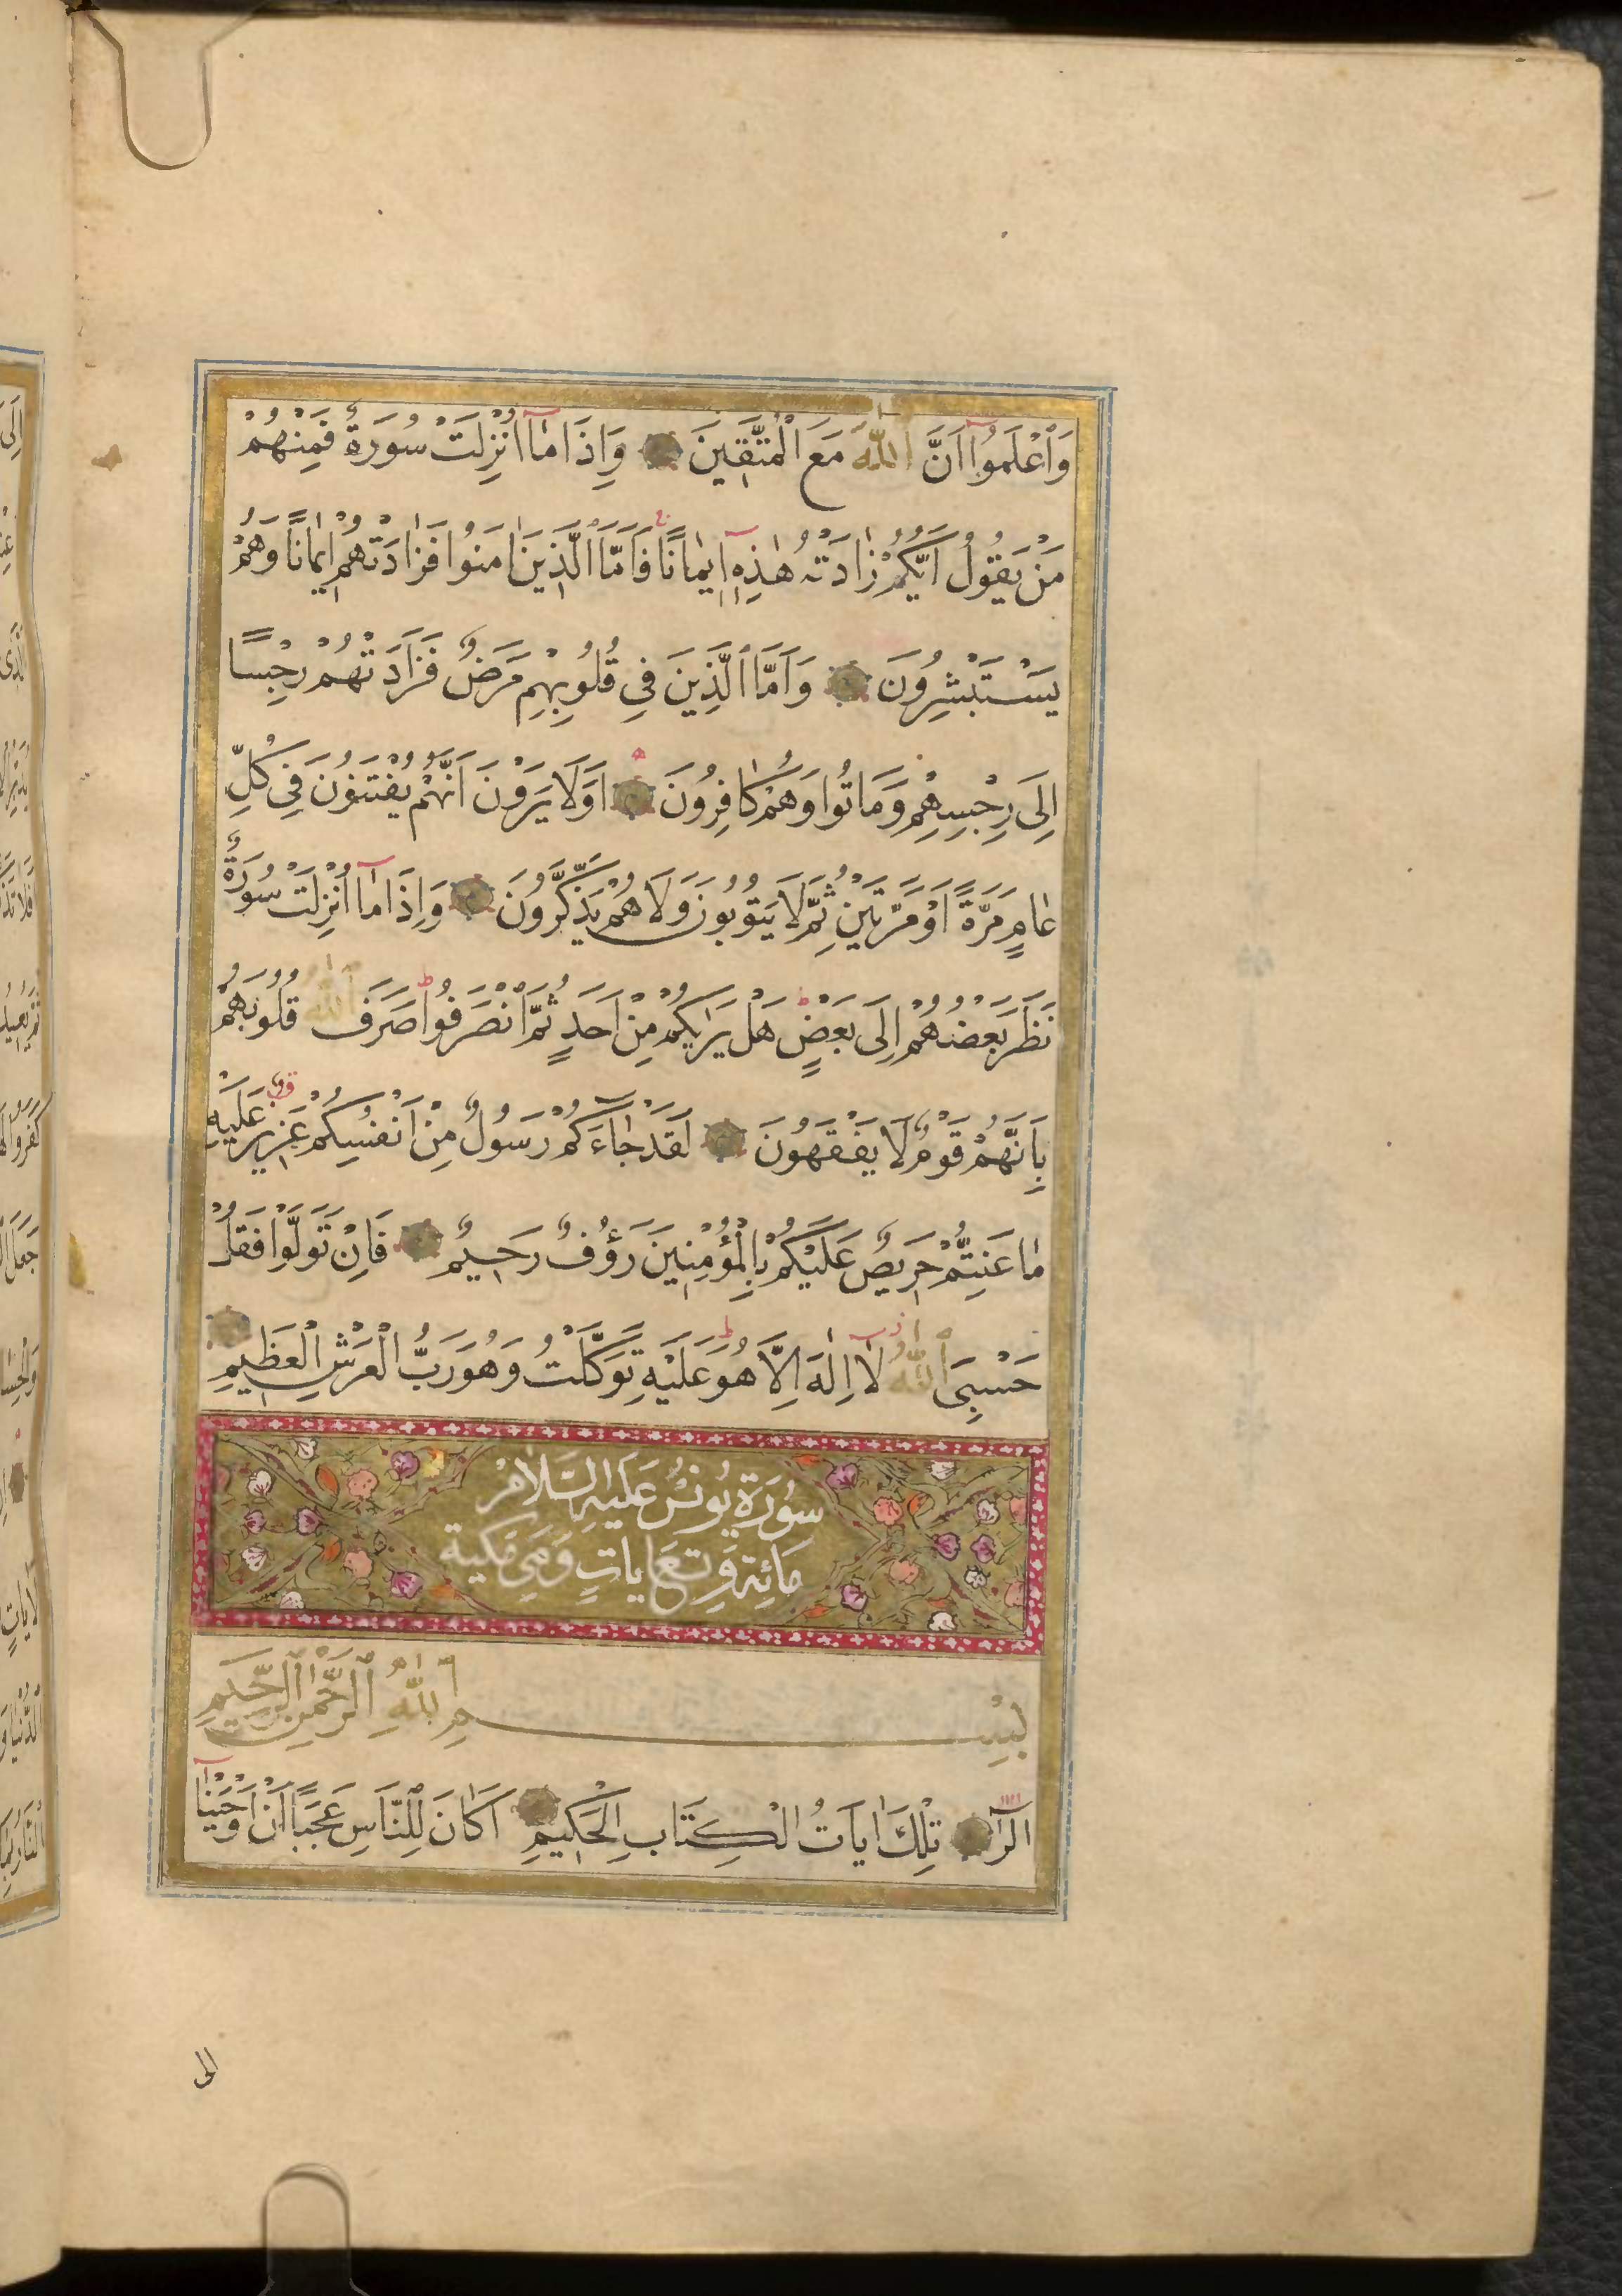 وَاعْلَمُوا اَنَّ اللّٰهَ مَعَ الْمُتَّقِينَ وَاِذَا مَا اُنْزِلَتْ سُورَةٌ فَمِنْهُمْ
مَنْ يَقُولُ اَيُّكُمْ زَادَتْهُ هٰذِهِ اِيمَانًا فَاَمَّا الَّذِينَ اٰمَنُوا فَزَادَتْهُمْ اِيمَانًا وَهُمْ
يَسْتَبْشِرُونَ وَاَمَّا الَّذِينَ فِي قُلُوبِهِمْ مَرَضٌ فَزَادَتْهُمْ رِجْسًا
اِلَى رِجْسِهِمْ وَمَاتُوا وَهُمْ كَافِرُونَ اَوَلَا يَرَوْنَ اَنَّهُمْ يُفْتَنُونَ فِي كُلِّ
عَامٍ مَرَّةً اَوْ مَرَّتَيْنِ ثُمَّ لَا يَتُوبُونَ وَلَا هُمْ يَذَّكَّرُونَ وَاِذَا مَا اُنْزِلَتْ سُورَةٌ
نَظَرَ بَعْضُهُمْ اِلَى بَعْضٍ هَلْ يَرٰيكُمْ مِنْ اَحَدٍ ثُمَّ انْصَرَفُوا صَرَفَ اللّٰهُ قُلُوبَهُمْ
بِاَنَّهُمْ قَوْمٌ لَا يَفْقَهُونَ لَقَدْ جَاءَكُمْ رَسُولٌ مِنْ اَنْفُسِكُمْ عَزِيزٌ عَلَيْهِ
مَا عَنِتُّمْ حَرِيصٌ عَلَيْكُمْ بِالْمُؤْمِنِينَ رَؤُفٌ رَحِيمٌ فَاِنْ تَوَلَّوْا فَقُلْ
حَسْبِيَ اللّٰهُ لَا اِلٰهَ اِلَّا هُوَ عَلَيْهِ تَوَكَّلْتُ وَهُوَ رَبُّ الْعَرْشِ الْعَظِيمِ
سُورَةُ يُونُسَ عَلَيْهِ السَّلَامُ
مَائِة وَتِسْعَ ايَاتٍ وَهِيَ مَكِّيَة
بِسْمِ اللّٰهِ الرَّحْمٰنِ الرَّحِيمِ
الٓرٰ تِلْكَ اٰيَاتُ الْكِتَابِ الْحَكِيمِ اَكَانَ لِلنَّاسِ عَجَبًا اَنْ اَوْحَيْنَا
الى